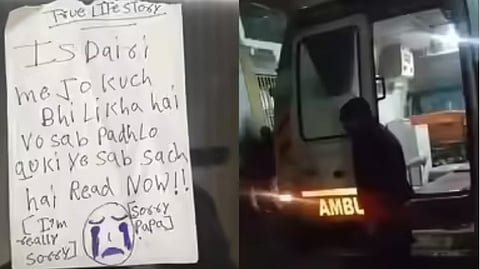 True Life Story
Is Dairi
me Jo kuch
Bhi Likha hai
Vo sab Padhlo
quki ye sab sach
hai Read Now!!
[I'm
really
sorry]
[Sorry
PaPa]
AMBL